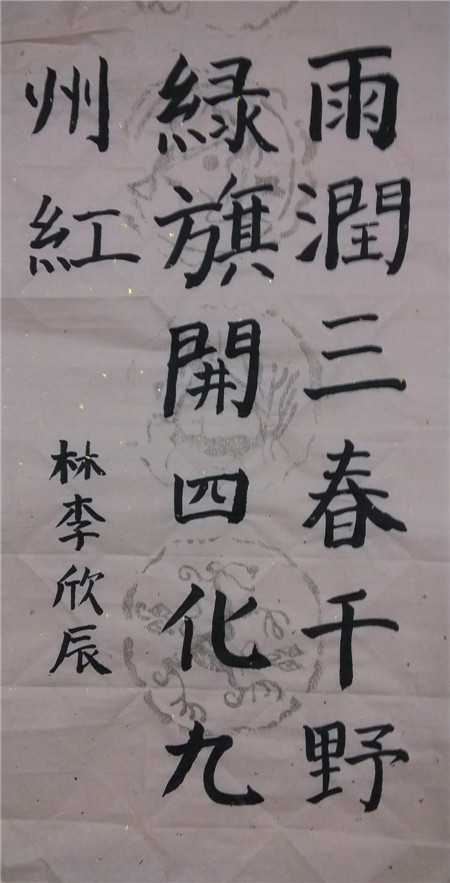 雨潤三春千野
綠旗開四化九
州紅
林李欣辰